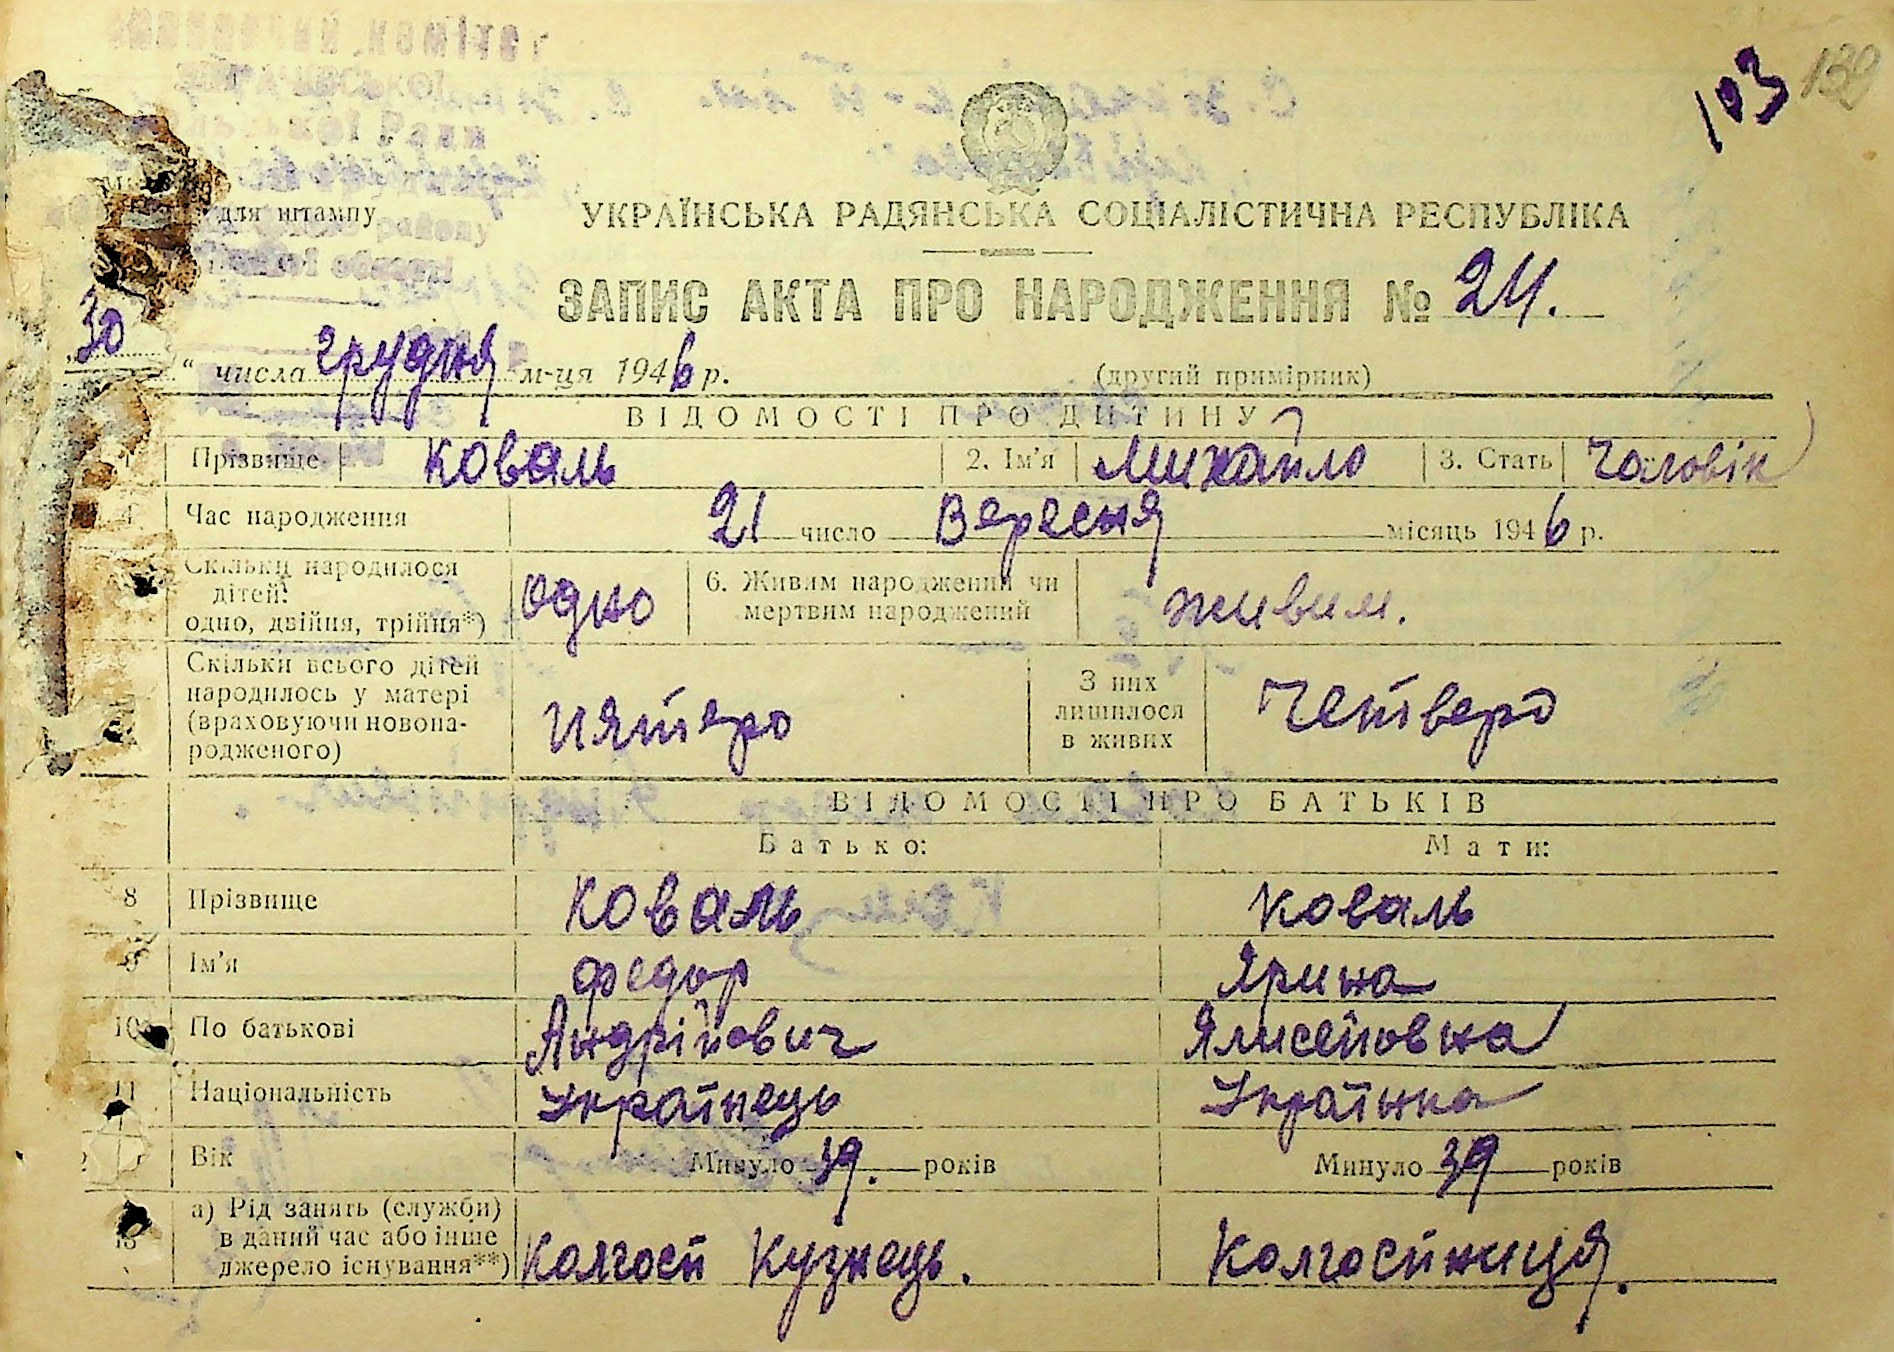 103 139
для штампу
УКРАЇНСЬКА РАДЯНСЬКА СОЦІАЛІСТИЧНА РЕСПУБЛІКА
ЗАПИС АКТА ПРО НАРОДЖЕННЯ № 24.
„30“ числа грудня м-ця 1946 р. (другий примірник)
ВІДОМОСТІ ПРО ДИТИНУ
1 Прізвище Коваль 2. Ім'я Михайло 3. Стать Чоловік
4 Час народження 21 число Вересня місяць 1946 р.
Скільки народилося дітей: одно, двійня, трійня*) одно 6. Живим народжений чи мертвим народжений живим.
Скільки всього дітей народилось у матері (враховуючи новонародженого) пятеро З них лишилося в живих Четверо
ВІДОМОСТІ ПРО БАТЬКІВ
Батько: Мати:
8 Прізвище Коваль Коваль
9 Ім'я Федор Ярина
10 По батькові Андрійович Ялисейовна
11 Національність Українець Українка
Вік Минуло 39. років Минуло 39 років
13 а) Рід занять (служби) в даний час або інше джерело існування**) Колгосп Кузнець. Колгоспниця.